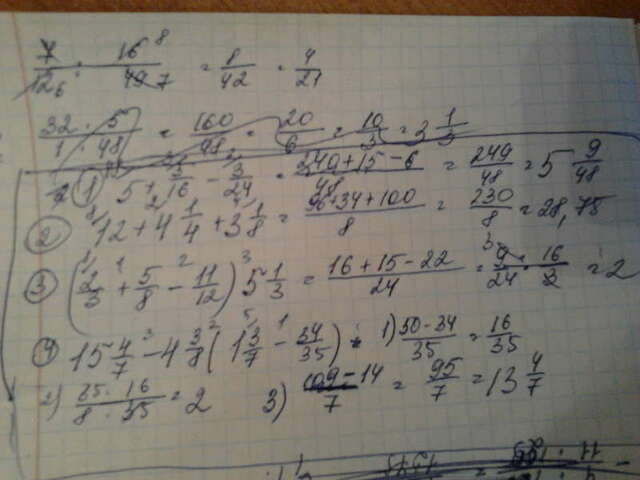 7/12 · 16/49 = 8/42 = 4/21
32 · 5 / 1 · 48 = 160/48 = 20/6 = 10/3 = 3 1/3
1) 5 5/16 - 3/24 = 240+15-6 / 48 = 249/48 = 5 9/48
2) 12 + 4 1/4 + 3 1/8 = 96+34+100 / 8 = 230/8 = 28,75
3) (2/3 + 5/8 - 11/12) 5 1/3 = 16+15-22 / 24 = 9/24 · 16/3 = 2
4) 15 4/7 - 4 3/8 (1 3/7 - 34/35) = 1) 50-34 / 35 = 16/35
2) 35 · 16 / 8 · 35 = 2 3) 109-14 / 7 = 95/7 = 13 4/7